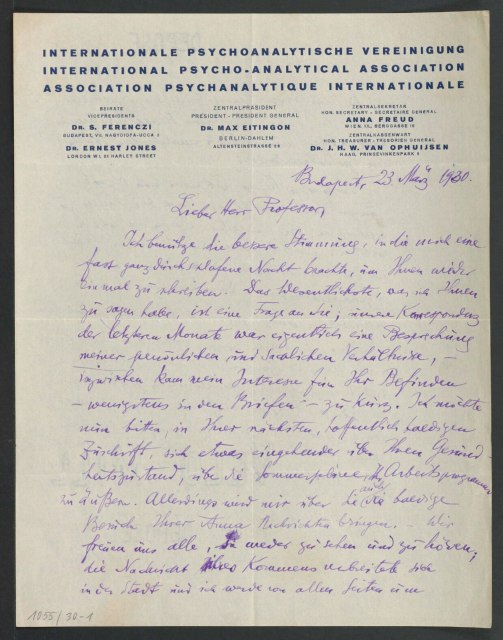 INTERNATIONALE PSYCHOANALYTISCHE VEREINIGUNG
INTERNATIONAL PSYCHO-ANALYTICAL ASSOCIATION
ASSOCIATION PSYCHANALYTIQUE INTERNATIONALE
BEIRATE
VICEPRESIDENTS
DR. S. FERENCZI
BUDAPEST, VII. NAGYDIOFA-UCCA 3
DR. ERNEST JONES
LONDON W1, 81 HARLEY STREET
ZENTRALPRÄSIDENT
PRESIDENT - PRESIDENT GENERAL
DR. MAX EITINGON
BERLIN-DAHLEM
ALTENSTEINSTRASSE 26
ZENTRALSEKRETÄR
HON. SECRETARY - SECRETAIRE GENERAL
ANNA FREUD
WIEN, IX., BERGGASSE 19
ZENTRALKASSENWART
HON. TREASURER - TRESORIER GENERAL
DR. J. H. W. VAN OPHUIJSEN
HAAG, PRINSEVINKENPARK 5
Budapest, 23 März 1930.
Lieber Herr Professor,
Ich benütze die bessere Stimmung, in die mich eine
fast ganz durchschlafene Nacht brachte, um Ihnen wieder
einmal zu schreiben. Das Wesentlichste, was ich Ihnen
zu sagen habe, ist eine Frage an Sie; unsere Korrespondenz
der letzteren Monate war eigentlich eine Besprechung
meiner persönlichen und sachlichen Verhältnisse, –
inzwischen kam mein Interesse für Ihr Befinden
– wenigstens in den Briefen – zu kurz. Ich möchte
nun bitten, in Ihrer nächsten, hoffentlich baldigen
Zuschrift, sich etwas eingehender über Ihren Gesund-
heitszustand, über die Sommerpläne, Arbeitsprogramm
zu äußern. Allerdings wird mir über Sie auch die baldige
Besuch Ihrer Anna Nachrichten bringen. – Wir
freuen uns alle, sie wieder zu sehen und zu hören;
die Nachricht ihres Kommens verbreitete sich
in der Stadt und ich werde von allen Seiten um
1055/30-1